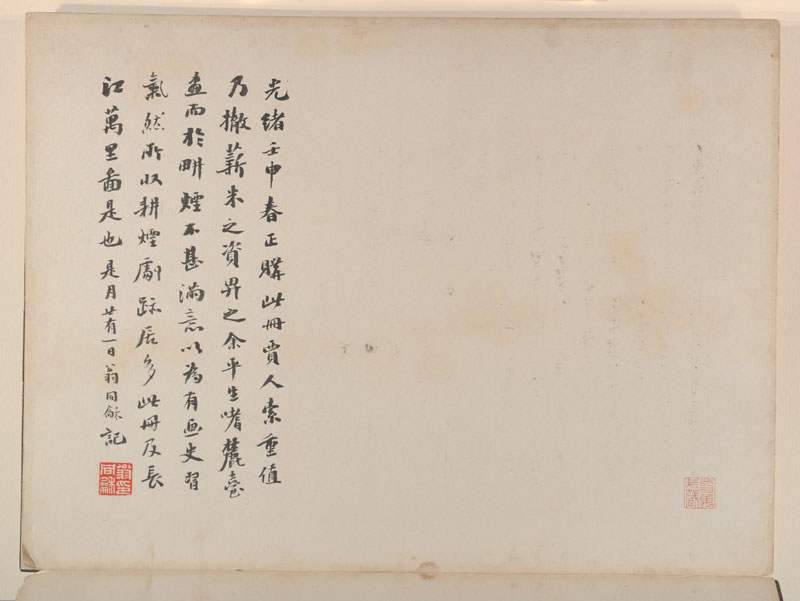 光緒壬申春正購此冊賈人索重值
乃撤薪米之資畀之余平生嗜麓臺
畫而於畊煙不甚滿意以為有畫史習
氣然所収耕煙劇跡居多此冊及長
江萬里圖是也是月廿有一日翁同龢記
翁同龢印